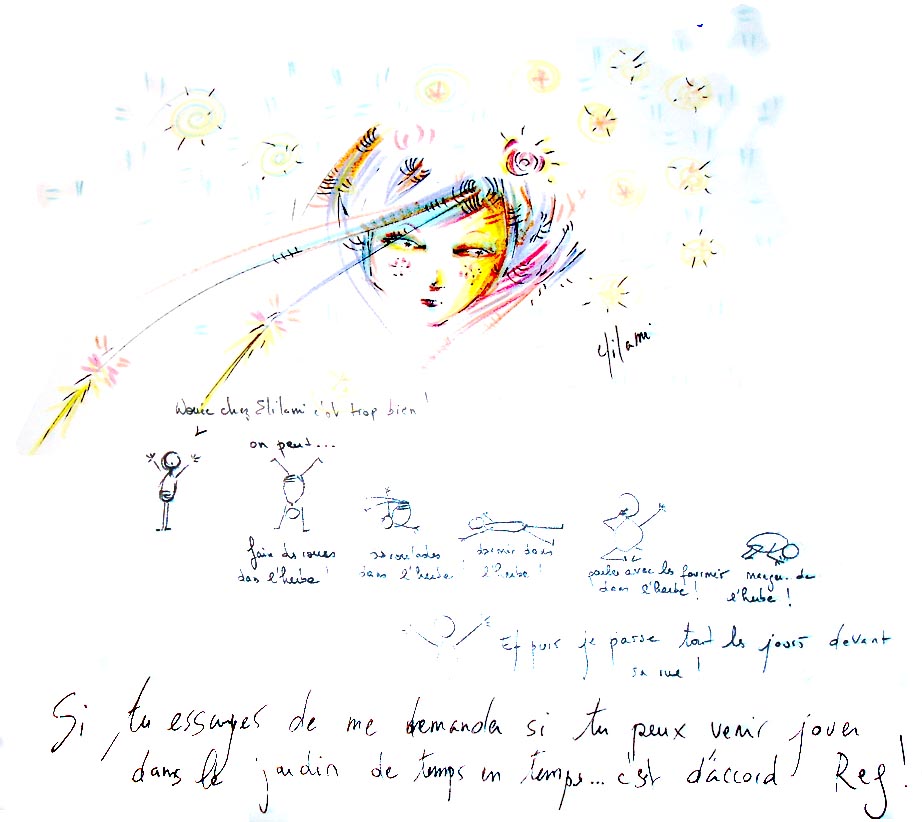 Elilami
Wouie chez Elilami c'est trop bien !
on peut...
faire des roues
dans l'herbe !
des roulades
dans l'herbe !
dormir dans
l'herbe !
parler avec les fourmir
dans l'herbe !
manger de
l'herbe !
Et puis je passe tout les jours devant
sa rue !
Si tu essayes de me demander si tu peux venir jouer
dans le jardin de temps en temps... c'est d'accord Reg !